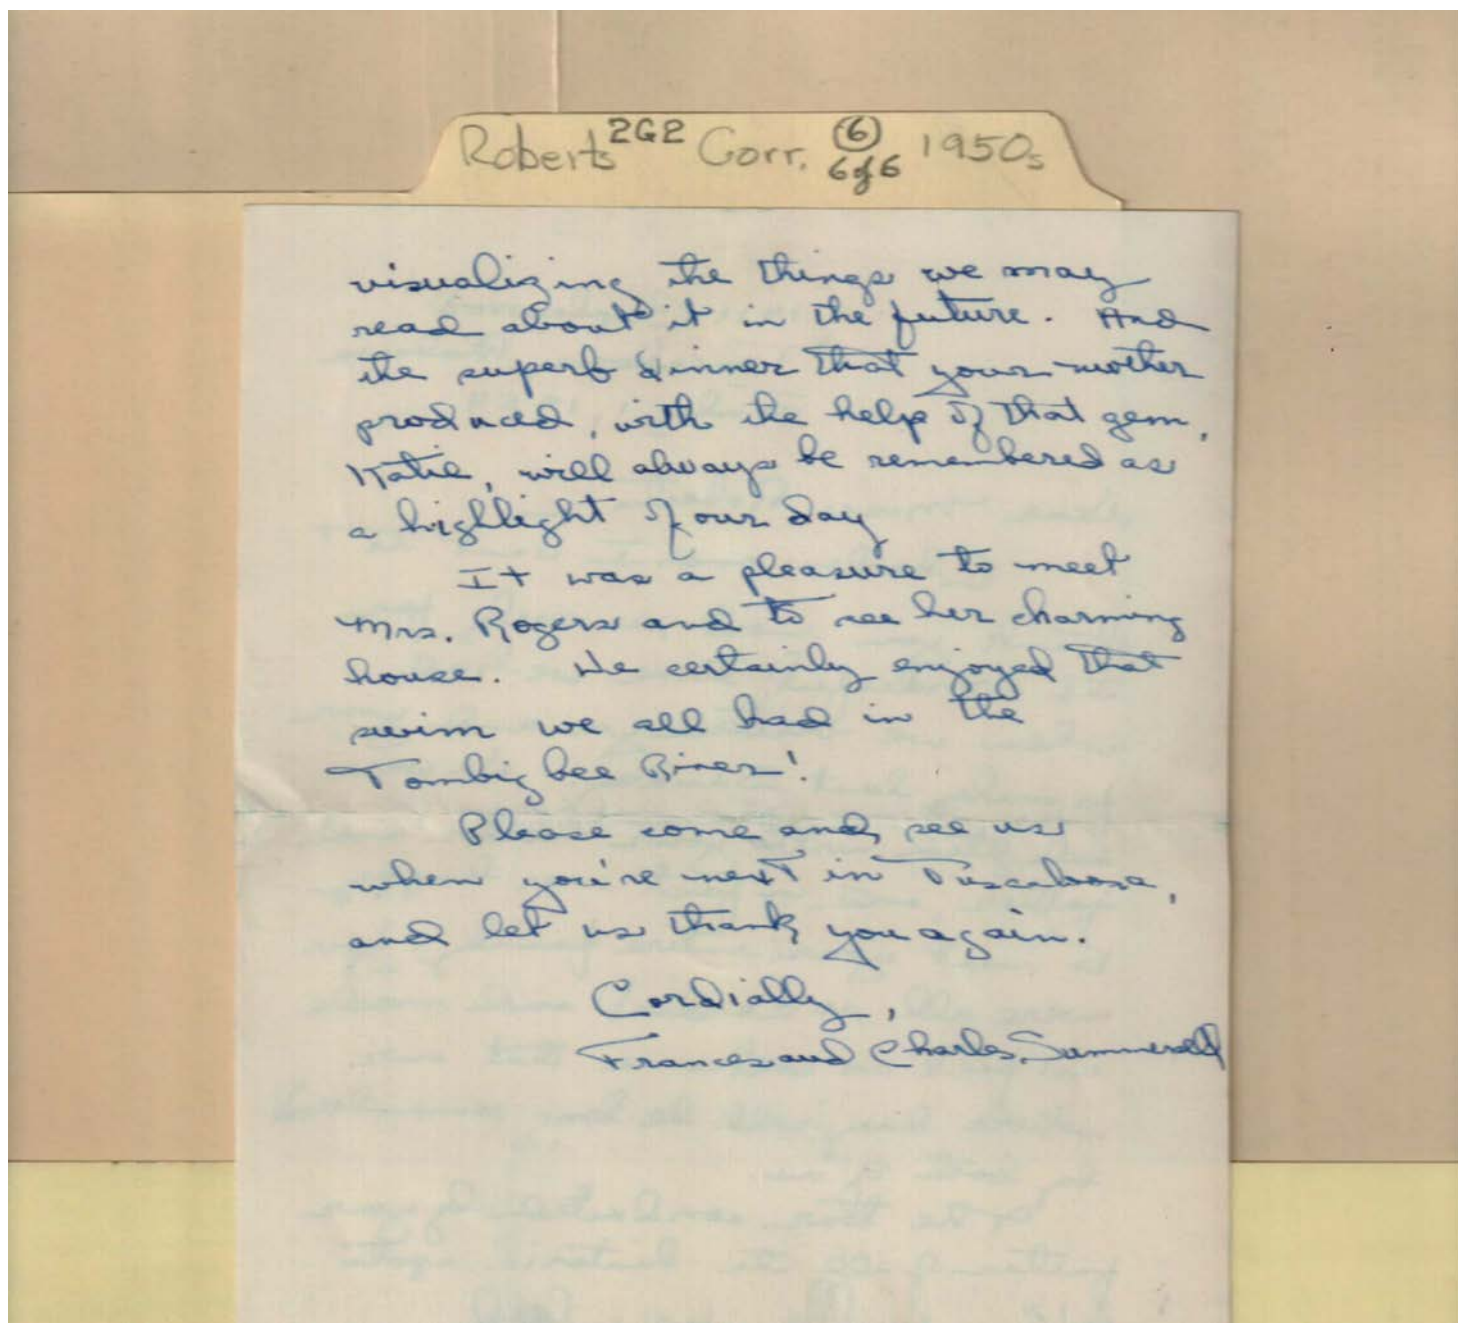 Roberts 2G2 Corr. 6 1950s
6 of 6
visualizing the things we may
read about it in the future. And
the superb dinner that your mother
produced, with the help of that gem,
Katie, will always be remembered as
a highlight of our day
It was a pleasure to meet
Mrs. Rogers and to see her charming
house. We certainly enjoyed that
swim we all had in the
Tombigbee River!
Please come and see us
when you're next in Tuscaloosa,
and let us thank you again.
Cordially,
Frances and Charles Summersell